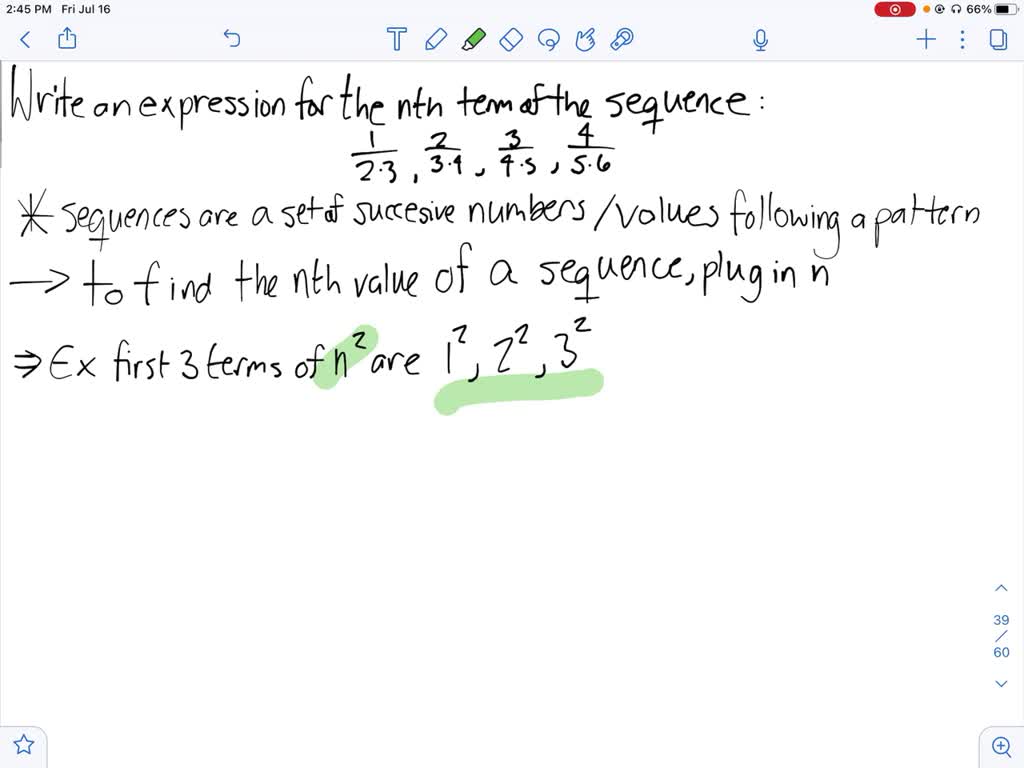 2:45 PM Fri Jul 16 66%
Write an expression for the nth term of the sequence:
1/2·3, 2/3·4, 3/4·5, 4/5·6
* sequences are a set of succesive numbers/values following a pattern
→ to find the nth value of a sequence, plug in n
⇒ Ex first 3 terms of n² are 1², 2², 3²
39
/
60